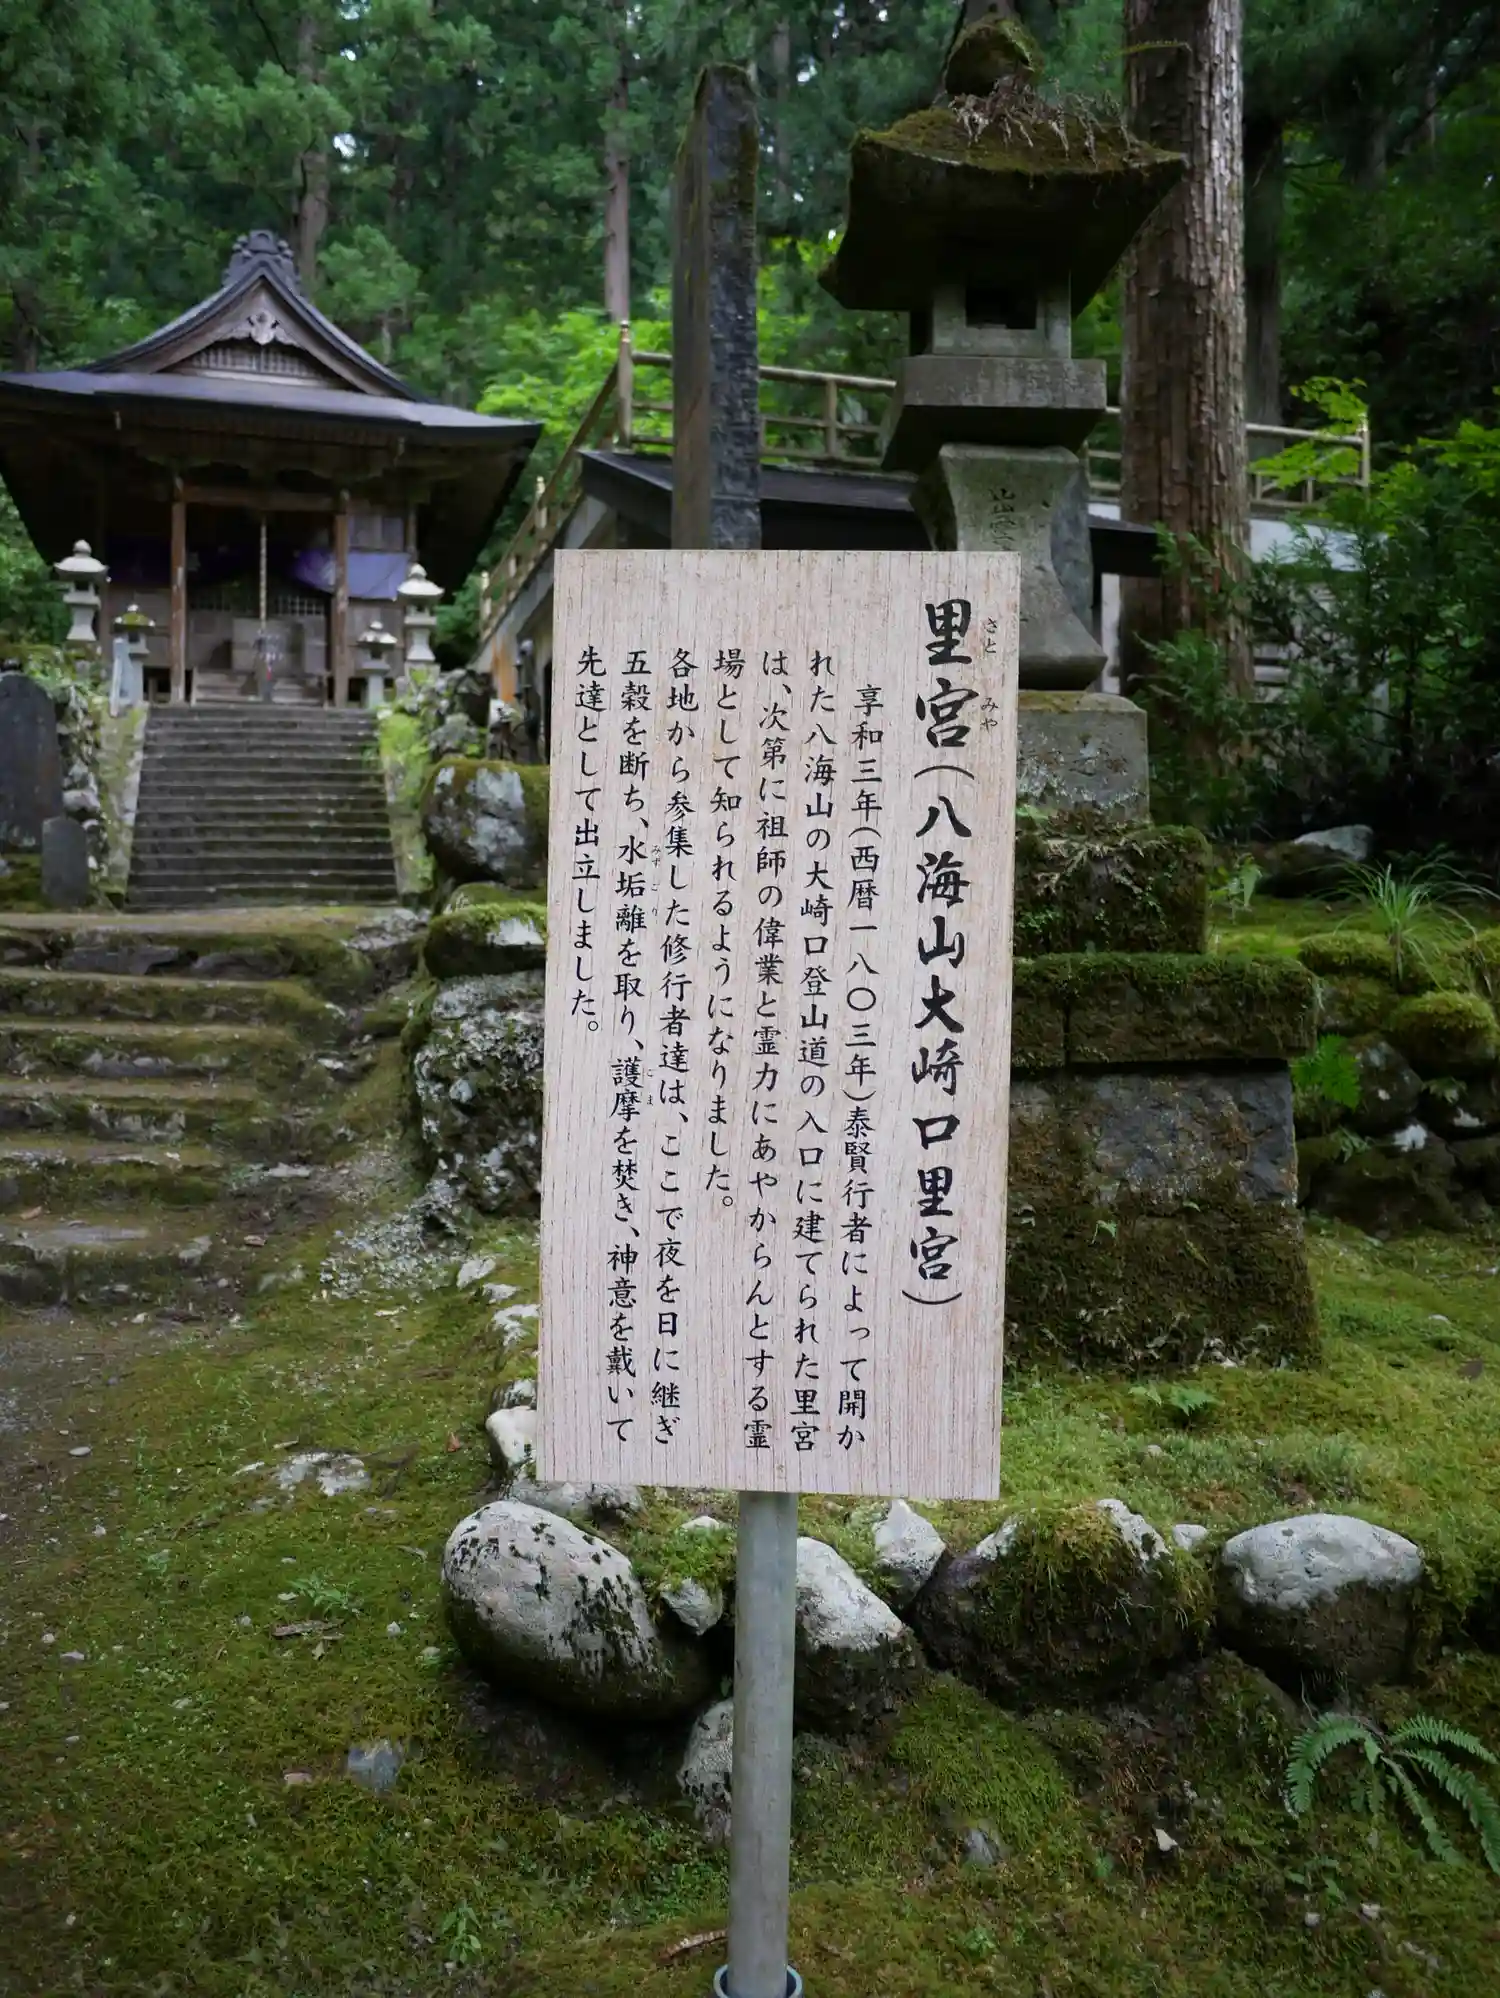 里宮(八海山大崎口里宮)
さと みや
享和三年(西暦一八〇三年)泰賢行者によって開か
れた八海山の大崎口登山道の入口に建てられた里宮
は、次第に祖師の偉業と霊力にあやからんとする霊
場として知られるようになりました。
各地から参集した修行者達は、ここで夜を日に継ぎ
五穀を断ち、水垢離を取り、護摩を焚き、神意を戴いて
みずごり ごま
先達として出立しました。